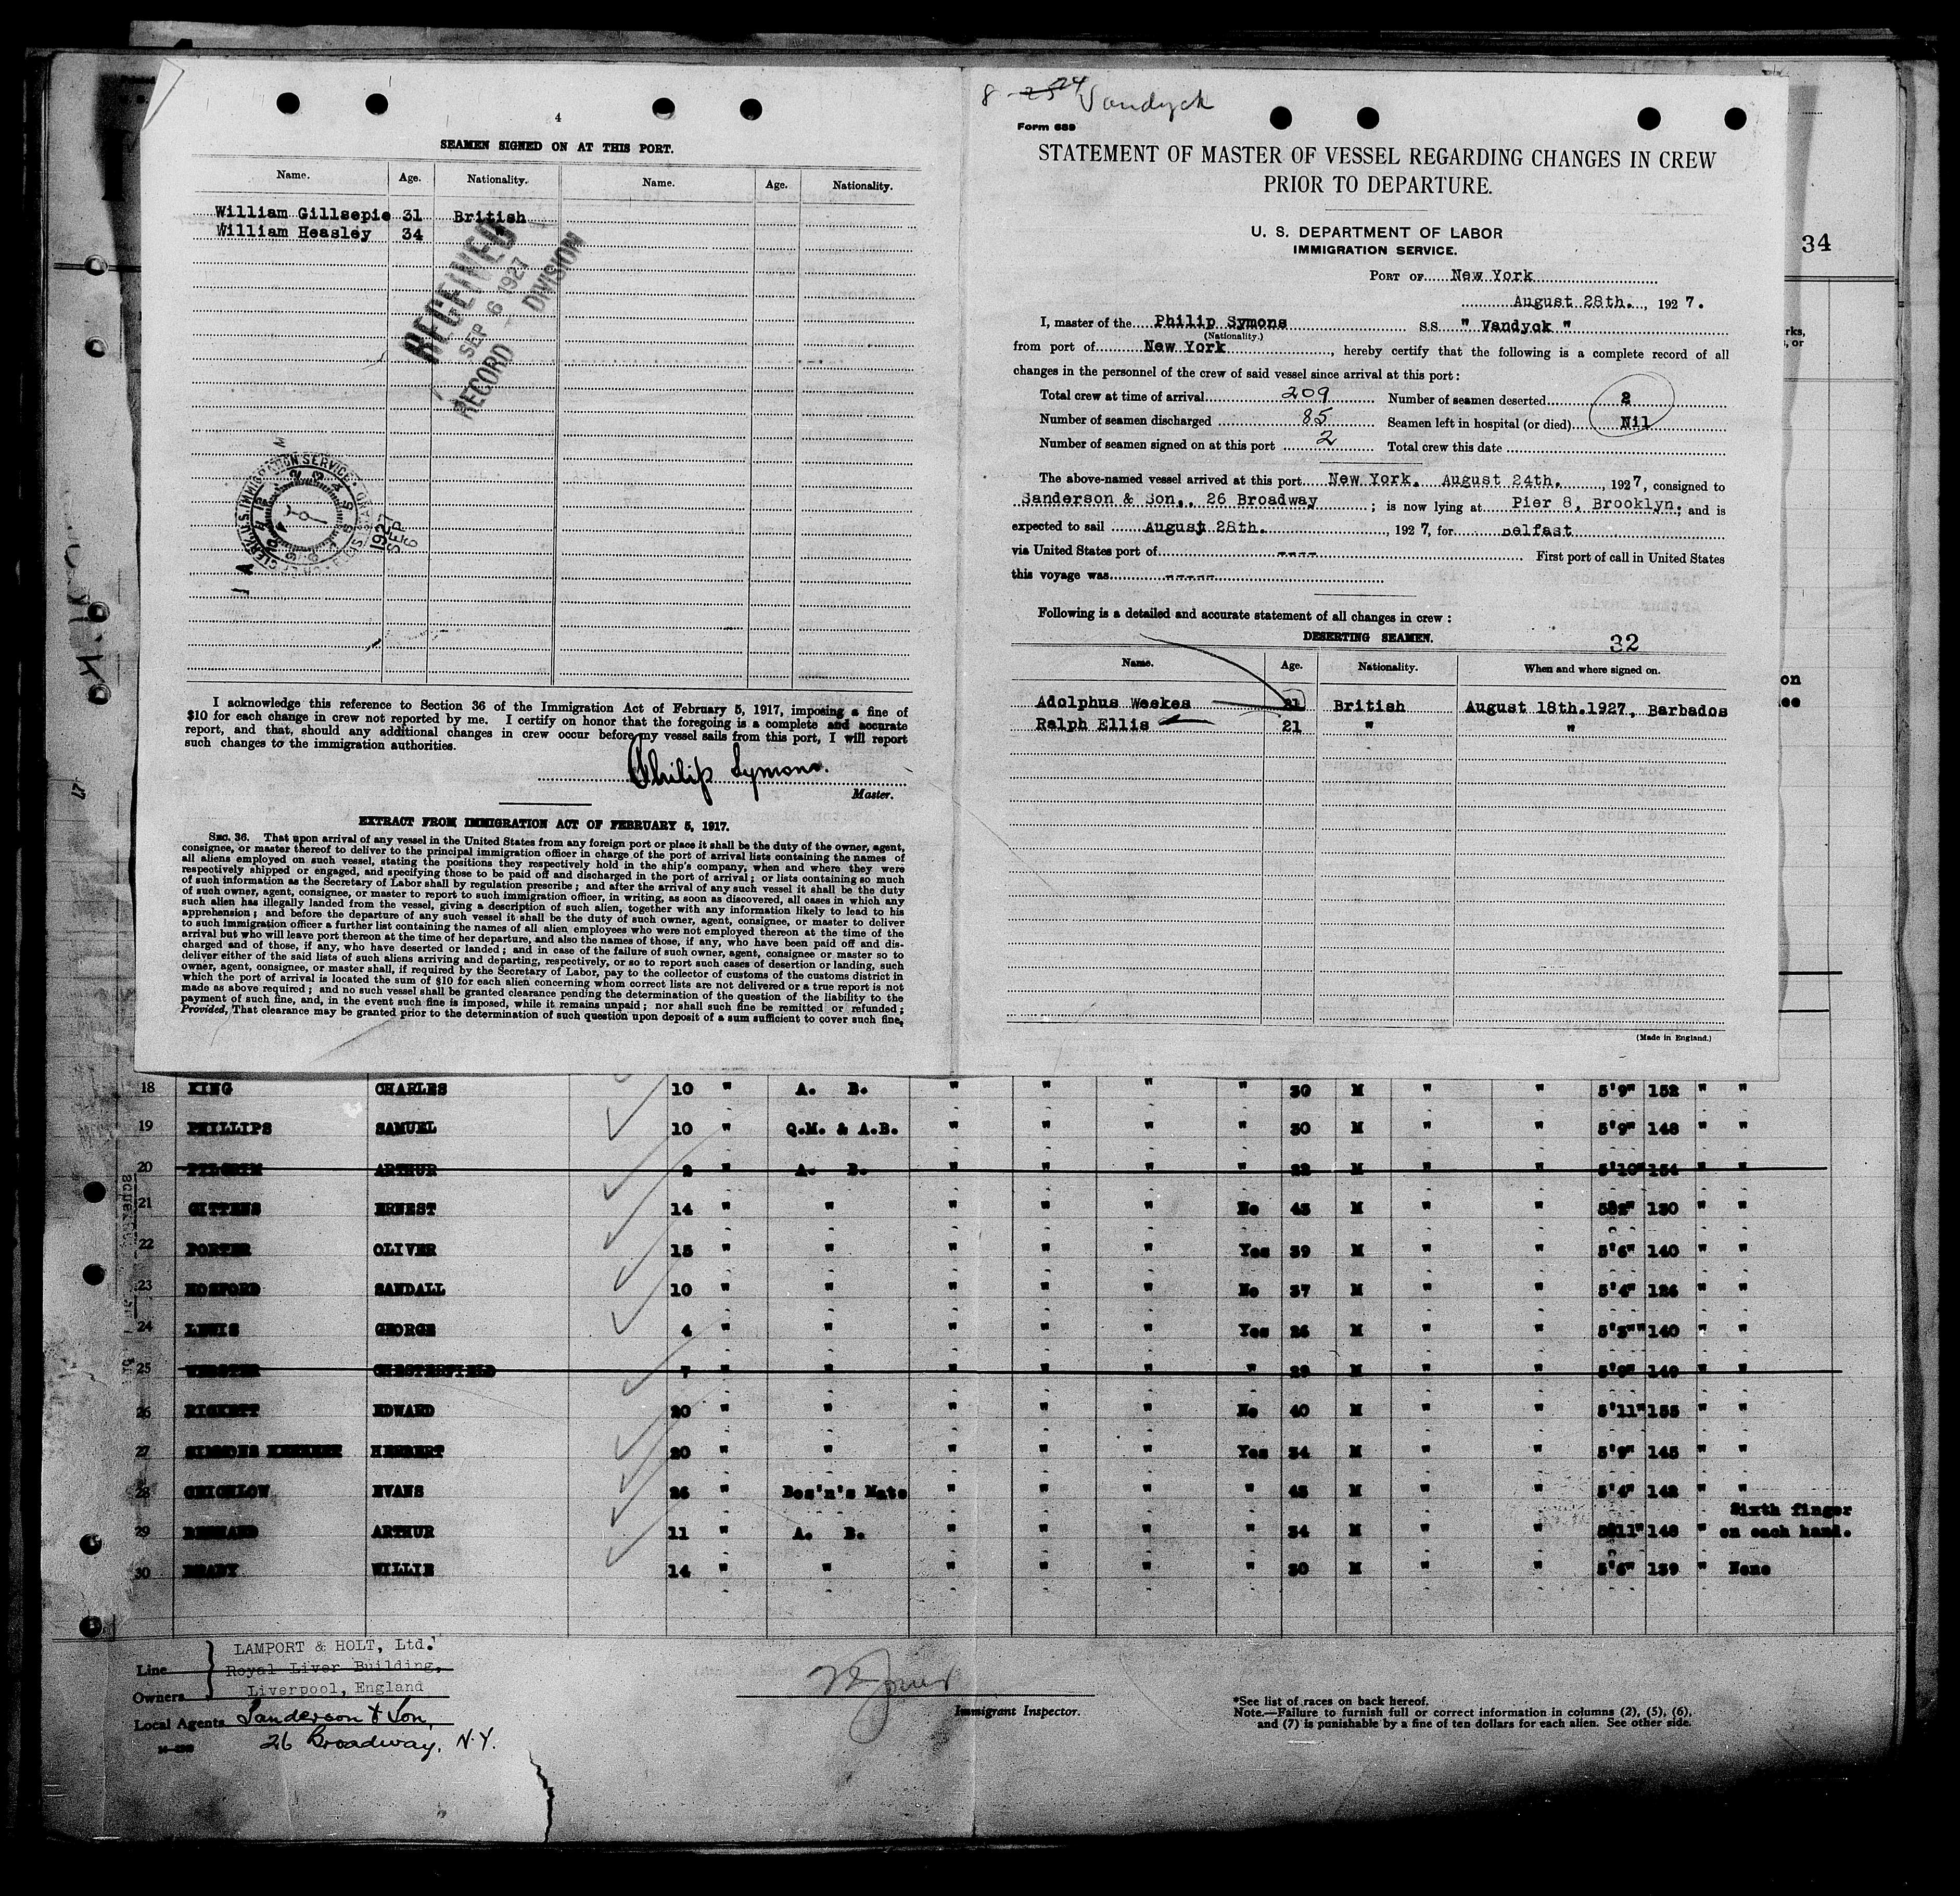 4
SEAMEN SIGNED ON AT THIS PORT.
Name. Age. Nationality. Name. Age. Nationality.
William Gillsepie 31 British
William Heasley 34
RECEIVED
SEP 6 1927
RECORD DIVISION
1927
SEP
6
I acknowledge this reference to Section 36 of the Immigration Act of February 5, 1917, imposing a fine of
$10 for each change in crew not reported by me. I certify on honor that the foregoing is a complete and accurate
report, and that, should any additional changes in crew occur before my vessel sails from this port, I will report
such changes to the immigration authorities.
Philip Symons.
Master.
EXTRACT FROM IMMIGRATION ACT OF FEBRUARY 5, 1917.
SEC. 36. That upon arrival of any vessel in the United States from any foreign port or place it shall be the duty of the owner, agent,
consignee, or master thereof to deliver to the principal immigration officer in charge of the port of arrival lists containing the names of
all aliens employed on such vessel, stating the positions they respectively hold in the ship's company, when and where they were
respectively shipped or engaged, and specifying those to be paid off and discharged in the port of arrival; or lists containing so much
of such information as the Secretary of Labor shall by regulation prescribe; and after the arrival of any such vessel it shall be the duty
of such owner, agent, consignee, or master to report to such immigration officer, in writing, as soon as discovered, all cases in which any
such alien has illegally landed from the vessel, giving a description of such alien, together with any information likely to lead to his
apprehension; and before the departure of any such vessel it shall be the duty of such owner, agent, consignee, or master to deliver
to such immigration officer a further list containing the names of all alien employees who were not employed thereon at the time of the
arrival but who will leave port thereon at the time of her departure, and also the names of those, if any, who have been paid off and dis-
charged and of those, if any, who have deserted or landed; and in case of the failure of such owner, agent, consignee or master so to
deliver either of the said lists of such aliens arriving and departing, respectively, or so to report such cases of desertion or landing, such
owner, agent, consignee, or master shall, if required by the Secretary of Labor, pay to the collector of customs of the customs district in
which the port of arrival is located the sum of $10 for each alien concerning whom correct lists are not delivered or a true report is not
made as above required; and no such vessel shall be granted clearance pending the determination of the question of the liability to the
payment of such fine, and, in the event such fine is imposed, while it remains unpaid; nor shall such fine be remitted or refunded;
Provided, That clearance may be granted prior to the determination of such question upon deposit of a sum sufficient to cover such fine,
8 - 25 24 Vandyck
Form 689
STATEMENT OF MASTER OF VESSEL REGARDING CHANGES IN CREW
PRIOR TO DEPARTURE.
U. S. DEPARTMENT OF LABOR
IMMIGRATION SERVICE.
PORT OF New York
August 28th., 1927.
I, master of the Philip Symons S.S. " Vandyck "
(Nationality.)
from port of New York, hereby certify that the following is a complete record of all
changes in the personnel of the crew of said vessel since arrival at this port:
Total crew at time of arrival 209 Number of seamen deserted 2
Number of seamen discharged 85 Seamen left in hospital (or died) Nil
Number of seamen signed on at this port 2 Total crew this date
The above-named vessel arrived at this port New York. August 24th., 1927, consigned to
Sanderson & Son., 26 Broadway; is now lying at Pier 8, Brooklyn.; and is
expected to sail August 28th., 1927, for Belfast
via United States port of ---- First port of call in United States
this voyage was -----
Following is a detailed and accurate statement of all changes in crew:
DESERTING SEAMEN. 32
Name. Age. Nationality. When and where signed on.
Adolphus Weekes 21 British August 18th.1927, Barbados
Ralph Ellis 21 " "
(Made in England.)
34
rks,
, or
on
ee
18 KING CHARLES 10 " A. B. " " " " 30 M " " 5'9" 152 " "
19 PHILLIPS SAMUEL 10 " Q.M. & A.B. " " " " 30 M " " 5'9" 148 " "
20 PILGRIM ARTHUR 2 " A. B. " " " " 22 M " " 5'10" 154 " "
21 GITTENS ERNEST 14 " " " " " No 43 M " " 130 " "
22 PORTER OLIVER 15 " " " " " Yes 39 M " " 5'6" 140 " "
23 HOSFORD SANDALL 10 " " " " " No 37 M " " 5'4" 126 " "
24 LEWIS GEORGE 4 " " " " " Yes 26 M " " 5'3" 140 " "
25 WEBSTER CHESTERFIELD 7 " " " " " " 29 M " " 5'9" 149 " "
26 RICKETT EDWARD 20 " " " " " No 40 M " " 5'11" 155 " "
27 SIMMONS HERBERT 20 " " " " " Yes 34 M " " 5'9" 145 " "
28 CRICHLOW EVANS 26 " Bos'n's Mate " " " " 45 M " " 5'4" 142 " "
29 ARTHUR 11 " A. B. " " " " 34 M " " 148 " Sixth finger
on each hand.
30 BRADY WILLIE 14 " " " " " " 30 M " " 5'6" 139 " None
LAMPORT & HOLT, Ltd.
Line Royal Liver Building,
Owners Liverpool, England
Local Agents Sanderson & Son,
26 Broadway, N.Y.
Immigrant Inspector.
*See list of races on back hereof.
Note.—Failure to furnish full or correct information in columns (2), (5), (6),
and (7) is punishable by a fine of ten dollars for each alien. See other side.